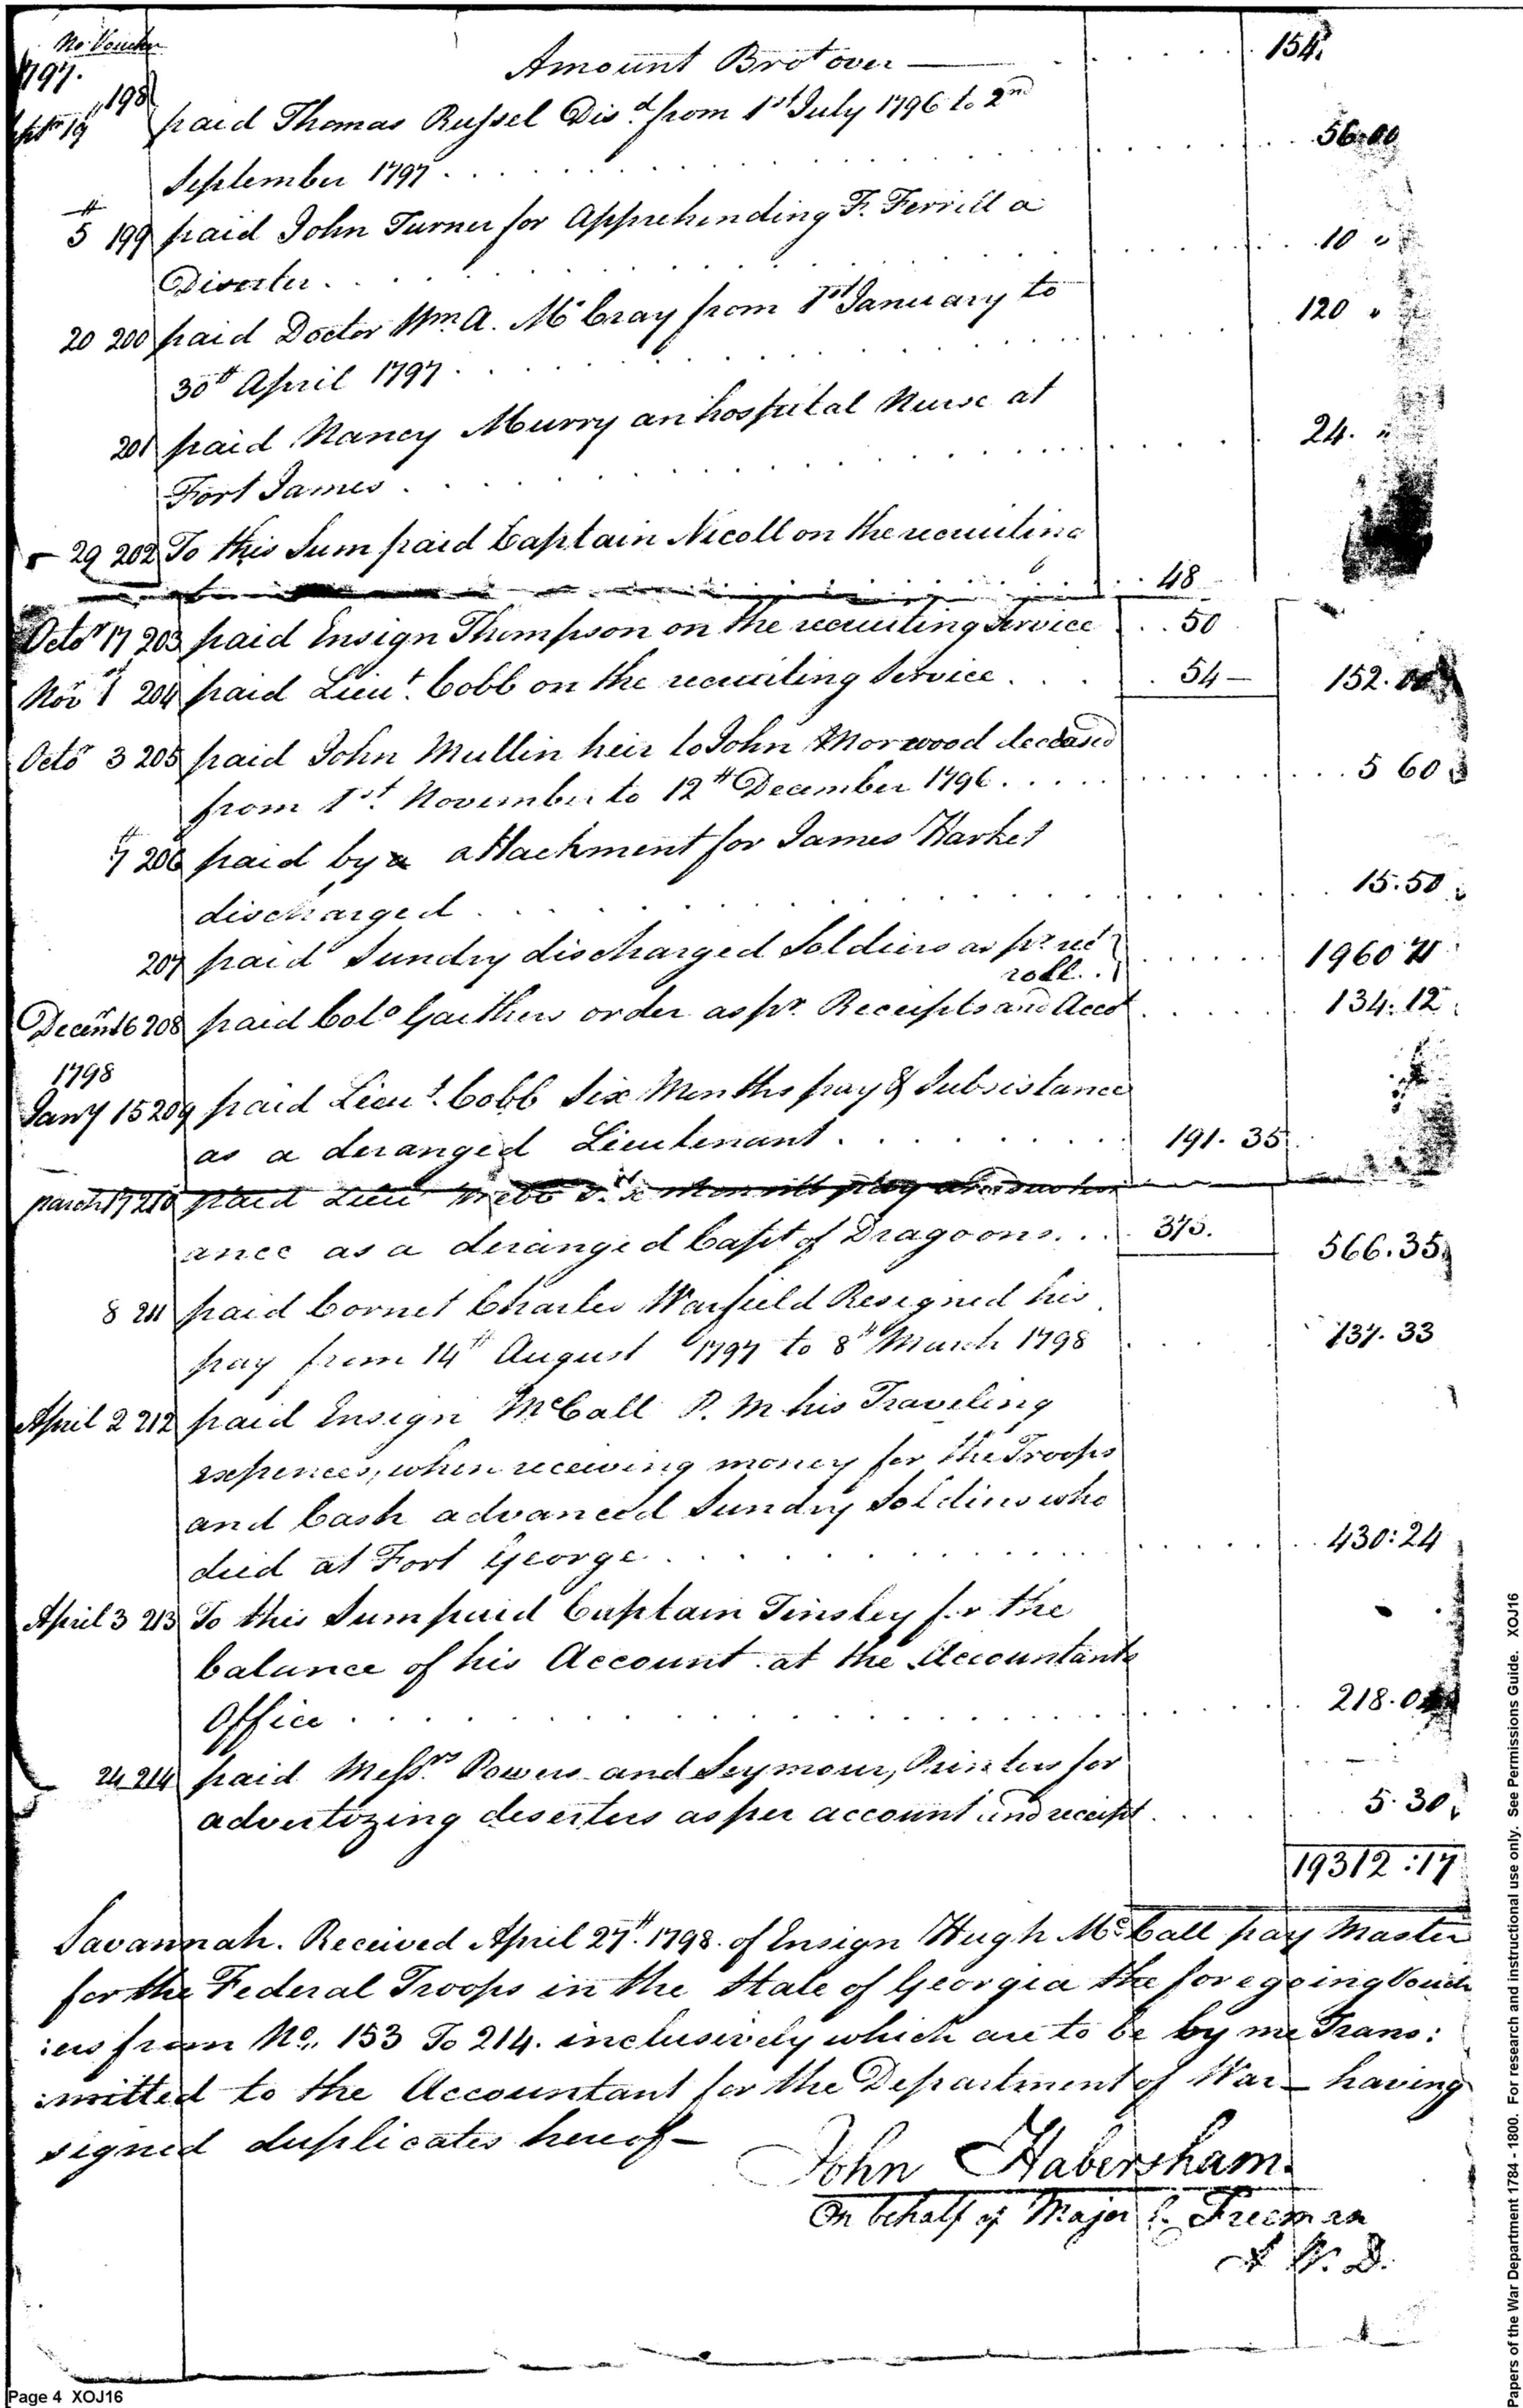 No. Voucher
1797.
Amount Brot over — 154.
19 198 paid Thomas Russel Disd. from 1st July 1796 to 2nd
September 1797 . . . 56.00
5th 199 paid John Turner for Apprehending F. Ferrill a
Diserter . . . 10 "
20 200 paid Doctor Wm. A. McCray from 1st January to 120 "
30th April 1797 . . .
201 paid Nancy Murry an hospital Nurse at
Fort James . . . 24. "
29 202 To this Sum paid Captain Nicoll on the recruiting
48
Octor 17 203 paid Ensign Thompson on the recruiting Service . . 50
Nor 1 204 paid Lieut. Cobb on the recruiting Service . . . 54 — 152.
Octor 3 205 paid John Mullin heir to John Morwood deceased
from 1st. November to 12th December 1796 . . . 5 60
7th 206 paid by a attachment for James Harket
discharged . . . 15.50
207 paid Sundry discharged Soldiers as pr. rect
roll . . 1960 71
Decemr 16 208 paid Colo Gaithers order as pr. Receipts and Acct . . . 134.12
1798
Jany 15 209 paid Lieut. Cobb Six Months pay & Subsistance
as a deranged Lieutenant . . . 191.35
March 17 210 paid Lieut Webb Six Months pay
ance as a deranged Capt of Dragoons . . . 375. 566.35
8 211 paid Cornet Charles Warfield Resigned his
pay from 14th August 1797 to 8th March 1798 . . . 137.33
April 2 212 paid Ensign McCall P. M his Traveling
expences, when receiving money for the Troops
and Cash advanced Sundry Soldiers who
died at Fort George . . . 430:24
April 3 213 To this Sum paid Captain Tinsley for the
balance of his Account at the Accountants
Office . . . 218.0
24 214 paid Messrs. Powers and Seymour, Printers for
advertizing deserters as per account and receipt . . . 5.30
19312:17
Savannah. Received April 27th. 1798. of Ensign Hugh McCall pay Master
for the Federal Troops in the State of Georgia the foregoing Vouch
:ers from No. 153 To 214. inclusively which are to be by me Trans:
:mitted to the Accountant for the Department of War — having
signed duplicates hereof —
John Habersham.
On behalf of Major C. Freeman
A W. D.
Page 4 XOJ16
Papers of the War Department 1784 - 1800. For research and instructional use only. See Permissions Guide. XOJ16